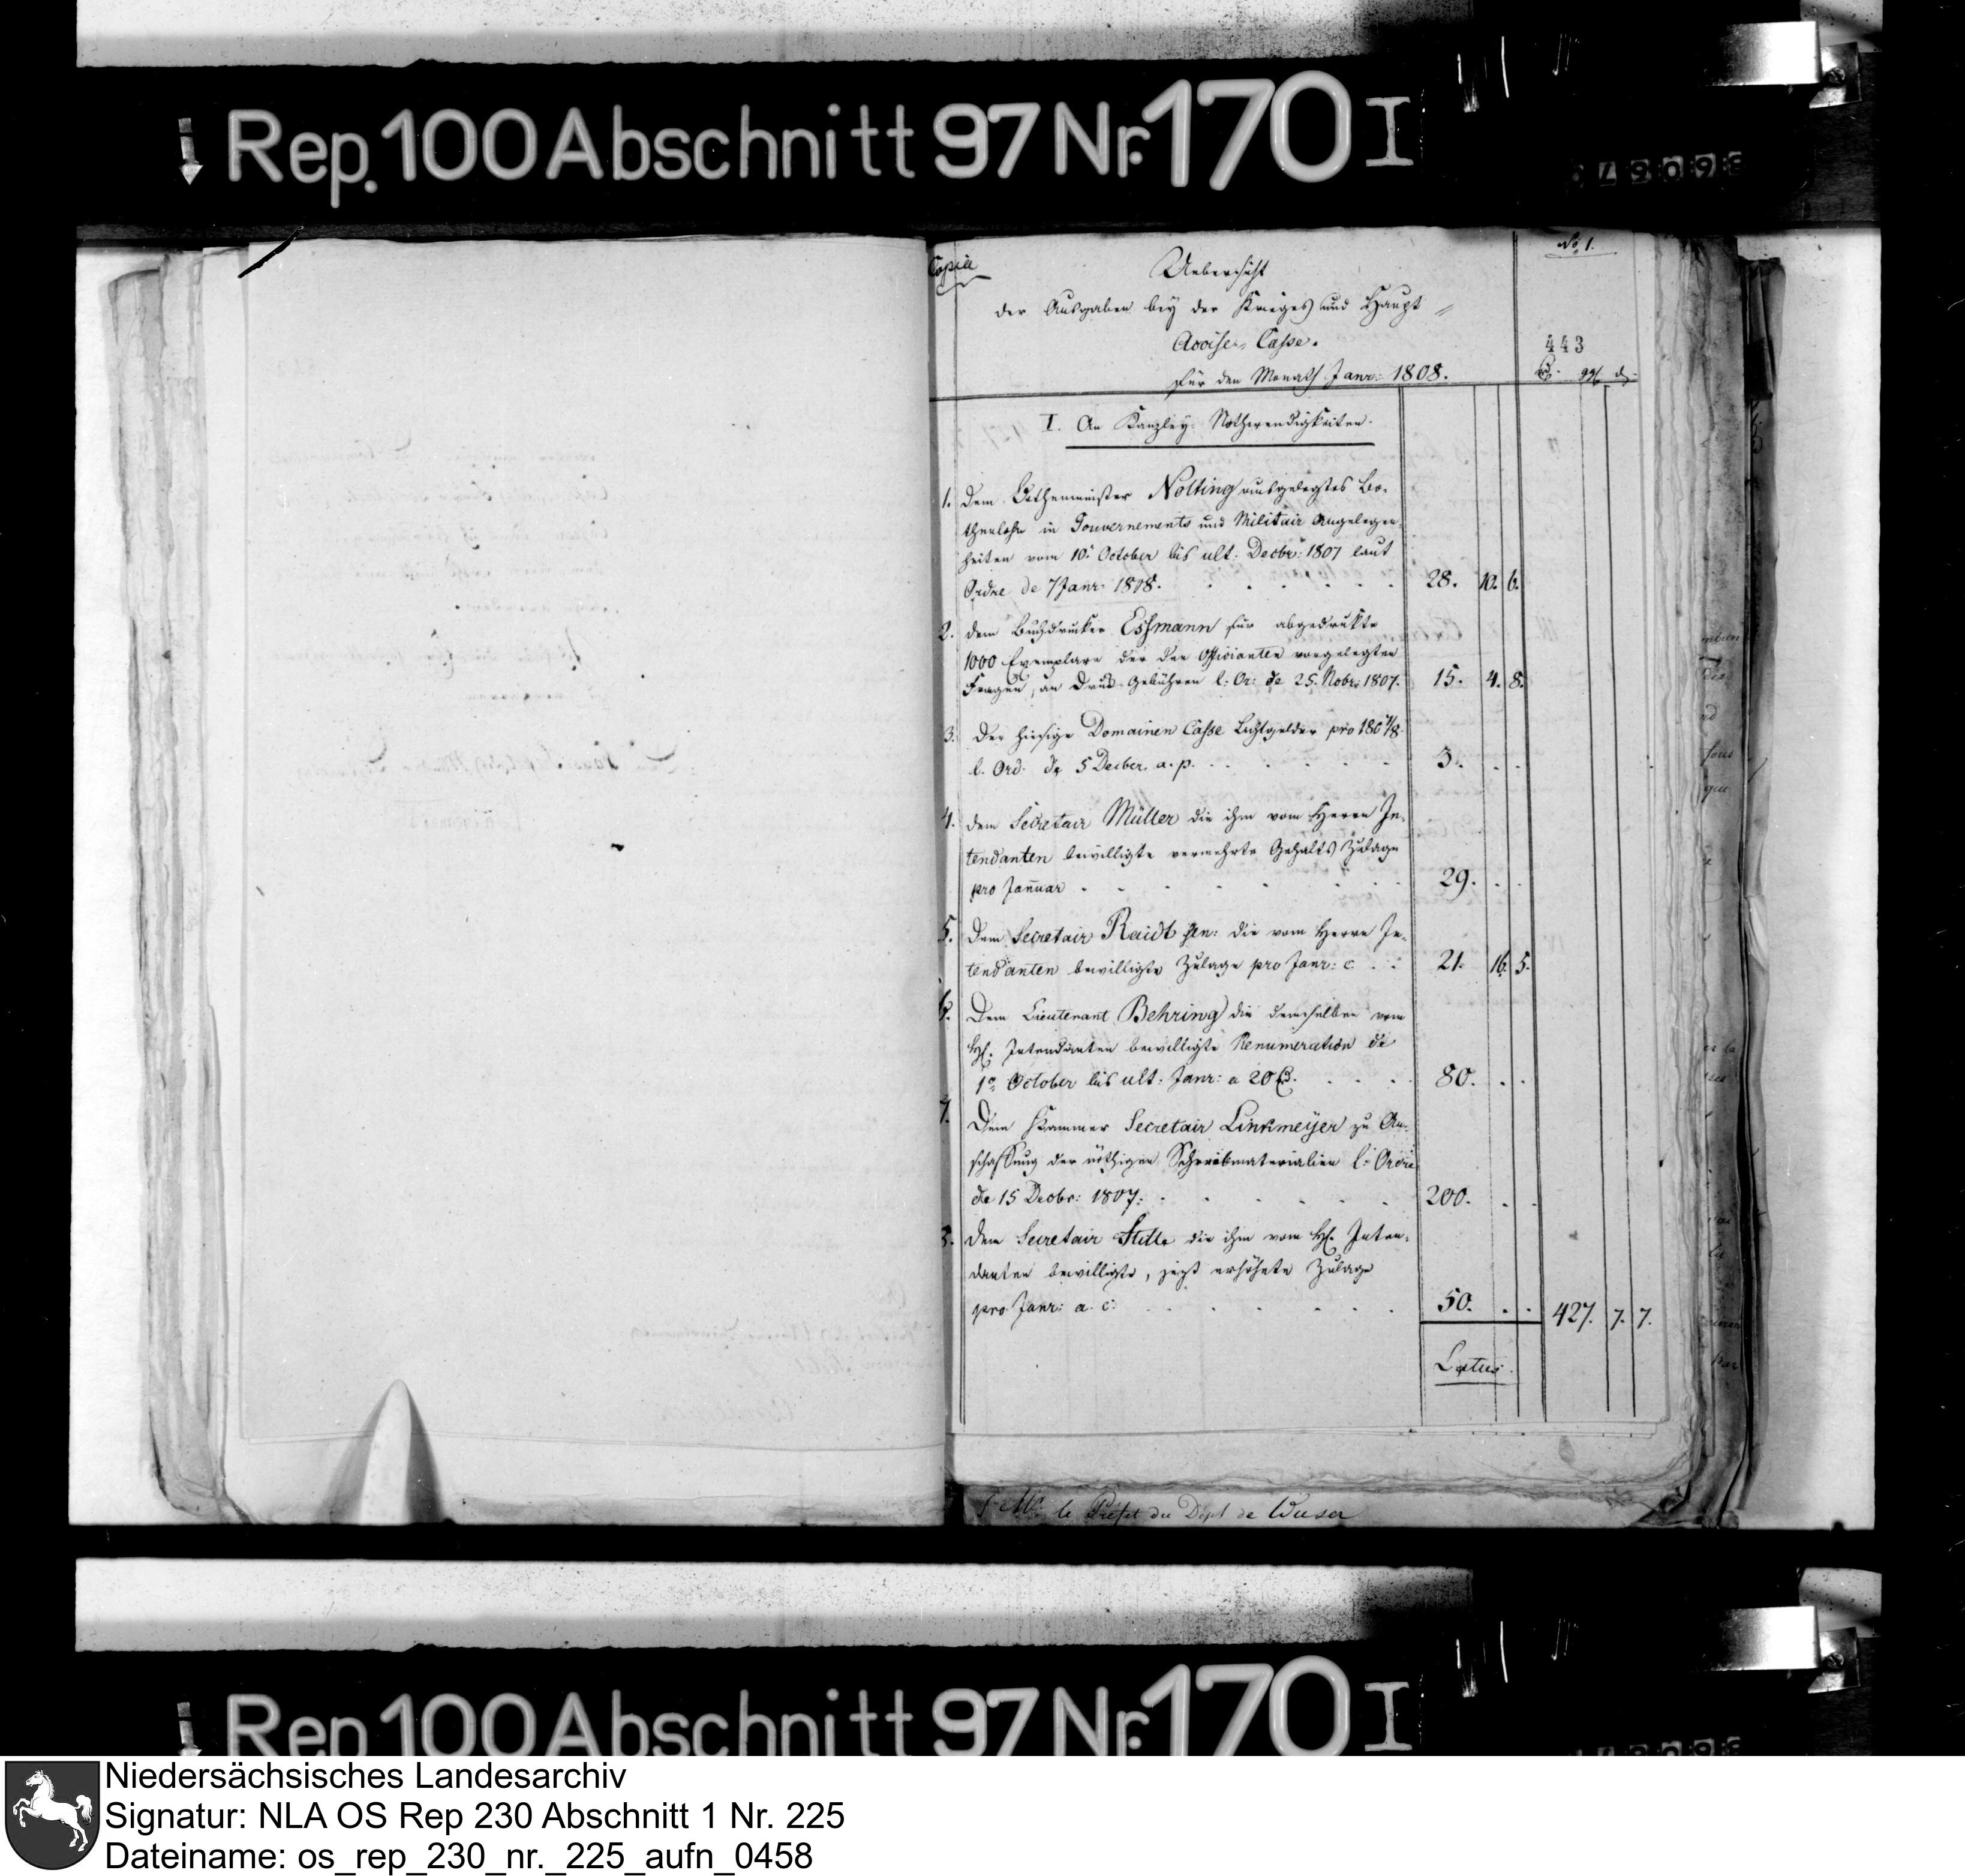 Rep. 100 Abschnitt 97 Nr. 170 I
Copia
No 1.
Uebersicht
der Ausgaben bey der Krieges und Haupt-
Accise-Casse.
für den Monath Janr: 1808.
443
ggl d
I. An Kanzley-Nothwendigkeiten.
1. Dem Bothenmeister Nolting ausgelegtes Bo-
thenlohn in Gouvernements und Militair Angelegen-
heiten vom 10. October bis ult. Decbr: 1807 laut
Ordre de 7 Janr 1808. 28. 10. 6.
2. dem Buchdrucker Essmann für abgedrukte
1000 Exemplare der den Officianten vorgelegten
Fragen, an Druk Gebühren l. Or: de 25. Nobr: 1807. 15. 4. 8.
3. Der hiesige Domainen Casse Lichtgelder pro 1807/8
l. Ord. de 5 Decber. a. p. 3. . .
4. dem Secretair Müller die ihm vom Herrn In-
tendanten bewilligte vermehrte Gehalts Zulage
pro Januar 29. . .
5. Dem Secretair Raidt sen: die vom Herrn In-
tendanten bewilligte Zulage pro Janr: c. 21. 16. 5.
6. Dem Lieutenant Behring die demselben vom
H. Intendanten bewilligte Renumeration de
1n October bis ult: Janr: a 20 80. . .
7. Dem Kammer Secretair Linkmeijer zu An-
schaffung der nöthigen Schreibmaterialien l: Ordre
de 15 Decbr: 1807: 200. . .
8. dem Secretair Stille die ihm vom H. Inten-
danten bewilligte, jezt erhöhete Zulage
pro Janr: a. c. 50. . . 427. 7. 7.
Latus.
Mr. le Préfet du Dépt de Weser
Rep 100 Abschnitt 97 Nr. 170 I
Niedersächsisches Landesarchiv
Signatur: NLA OS Rep 230 Abschnitt 1 Nr. 225
Dateiname: os_rep_230_nr._225_aufn_0458